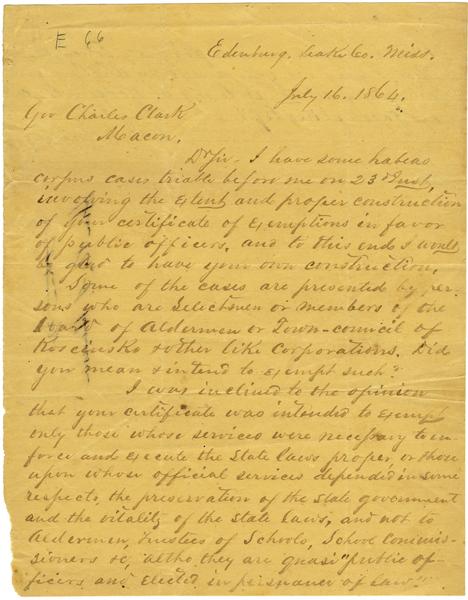 E 66
Edenburg, Leake Co. Miss.
July 16. 1864.
Gov Charles Clark
Macon.
Dr Sir. I have some habeas
corpus cases triable before me on 23d Inst,
involving the extent and proper construction
of your certificate of Exemptions in favor
of public officers, and to this end I would
be glad to have your own construction.
Some of the cases are presented by per-
sons who are Selectmen or members of the
Board of Aldermen or Town-council of
Kosciusko & other like corporations. Did
you mean & intend to exempt such?
I was inclined to the opinion
that your certificate was intended to exempt
only those whose services were necessary to en-
force and execute the State laws proper, or those
upon whose official services depended in some
respects, the preservation of the State government
and the vitality of the State laws, and not to
Aldermen, Trustees of Schools, School Commis-
sioners &c, altho, they are quasi "public of-
ficers and elected in persuance of law."